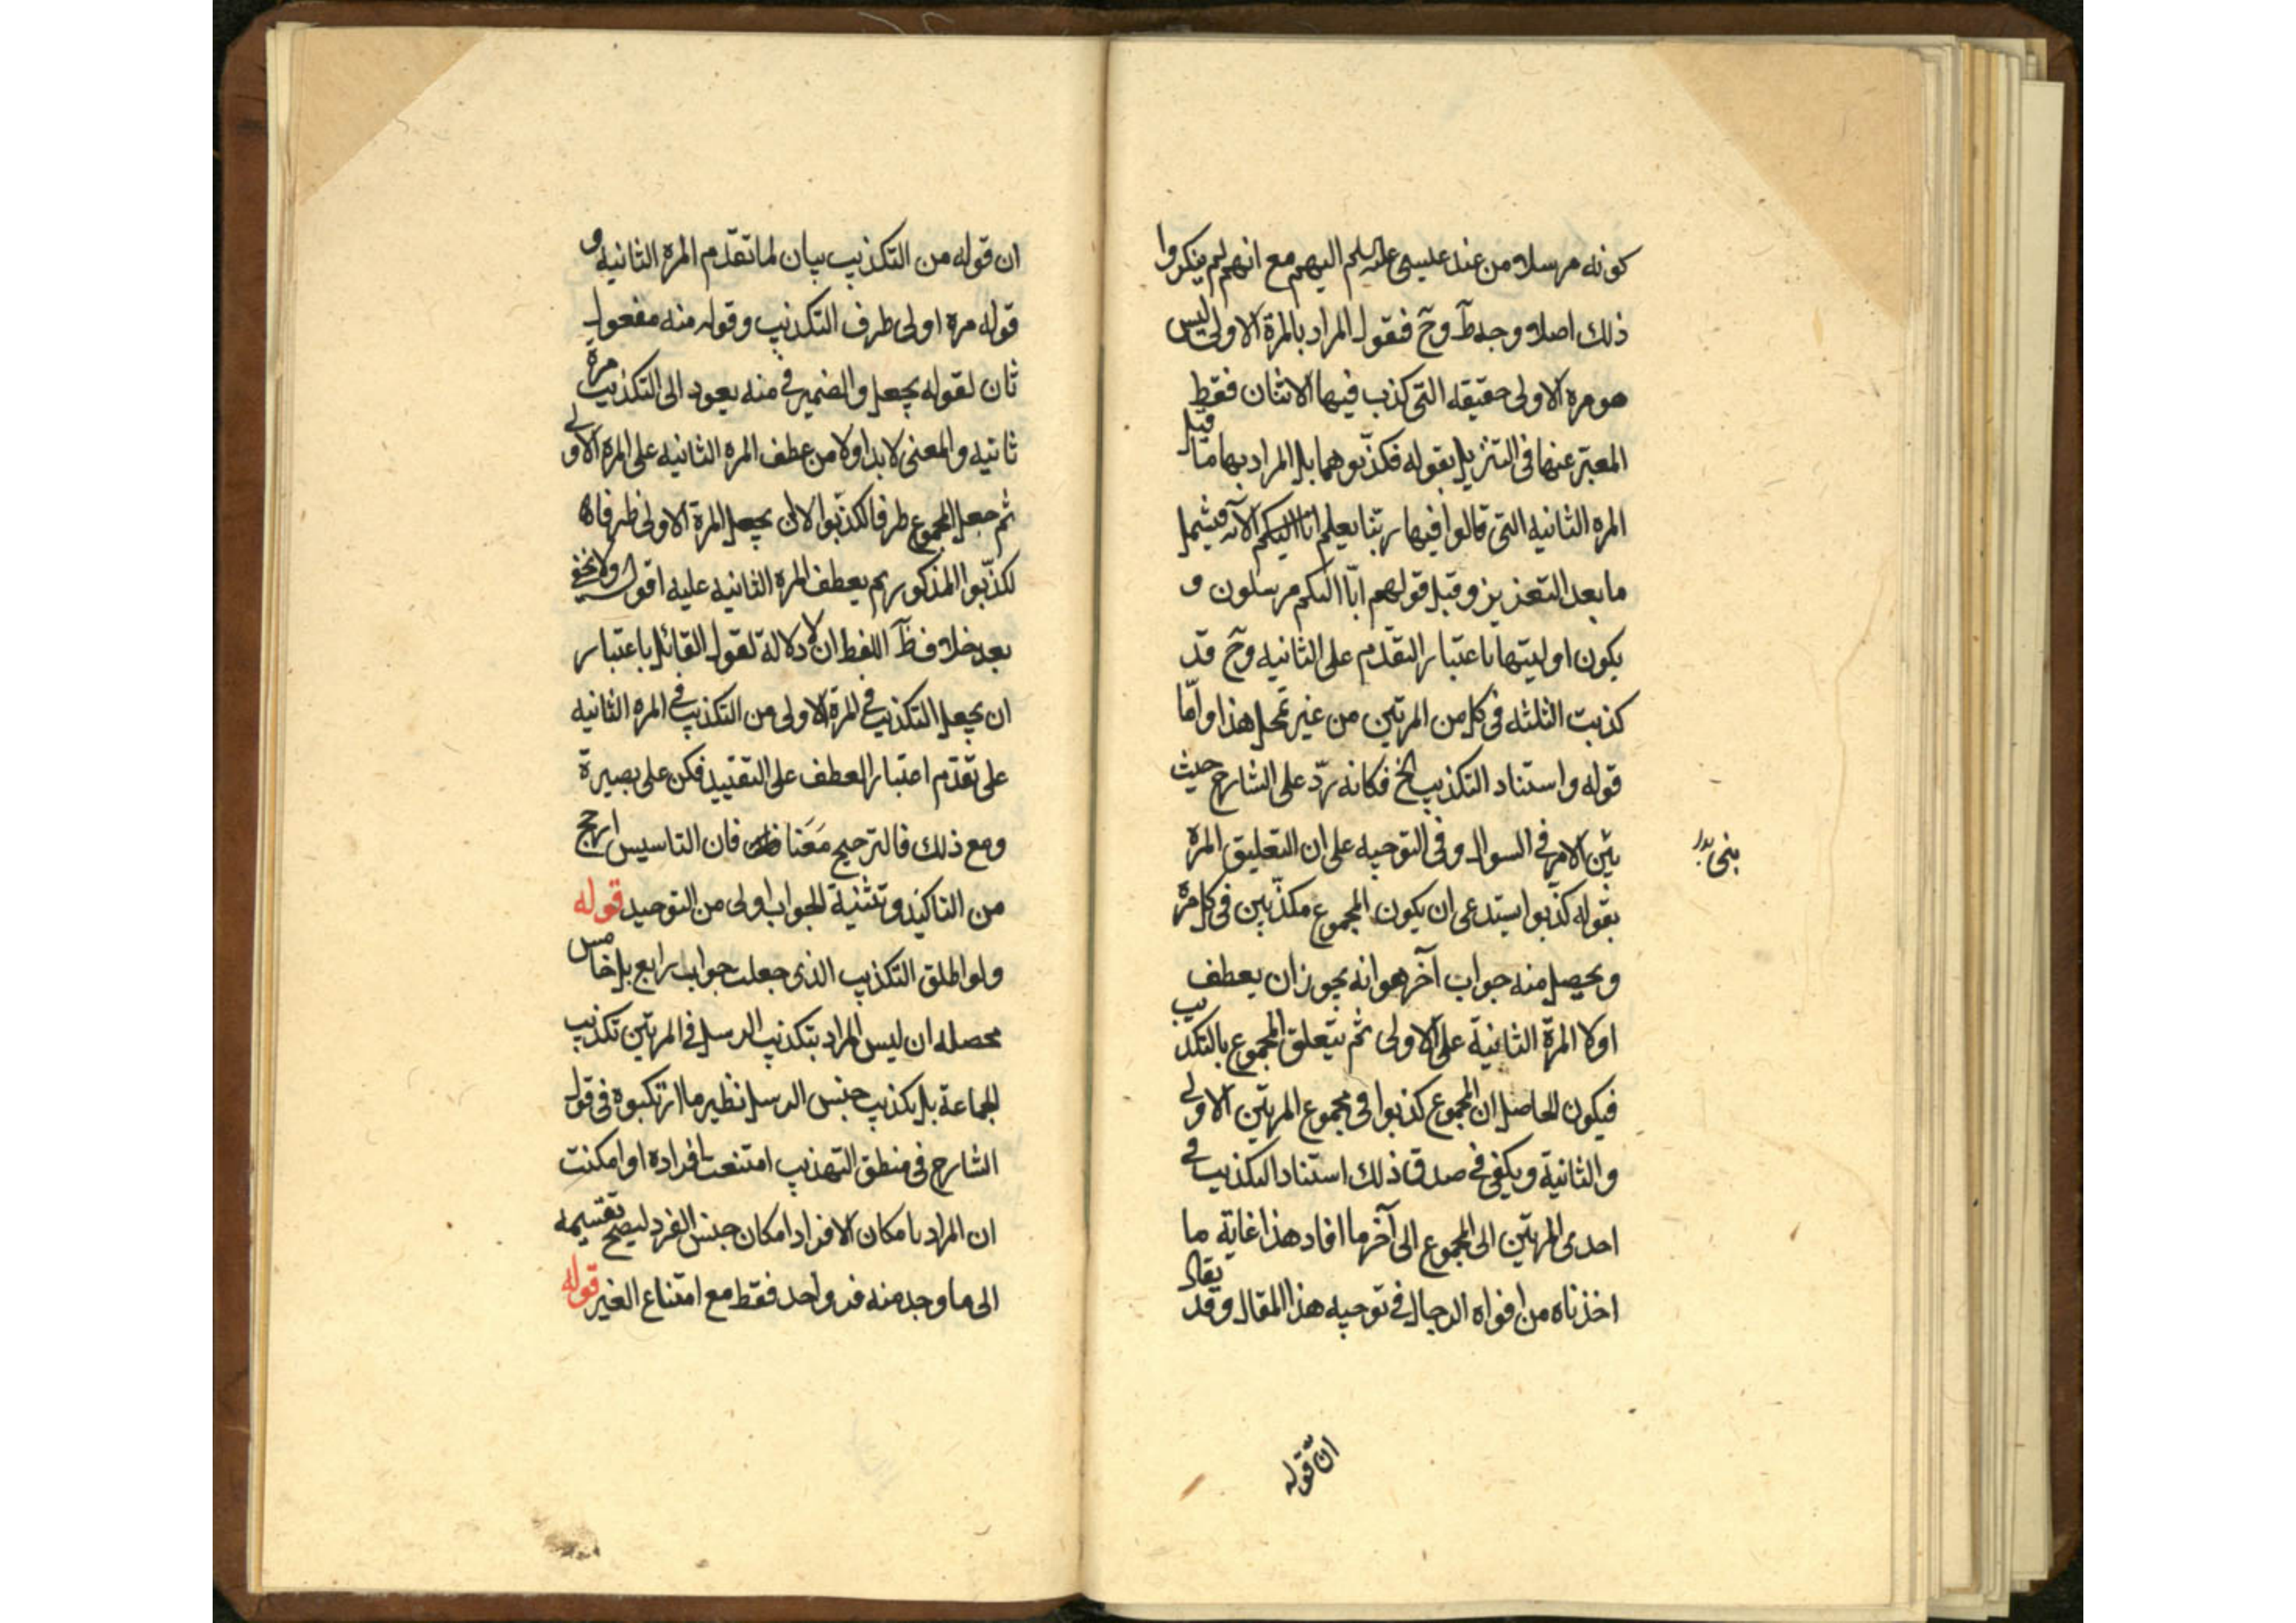 كونه مرسلا من عند عليسى عليه السلم اليهم مع انهم لم ينكروا
ذلك اصلا وجه ظ وح فنقول المراد بالمرة الاولى ليس
هو مره الاولى حقيقه التى كذب فيها الاثنان فقط
المعبّر عنها فى التنزيل بقوله فكذّبوهما بل المراد بها ما قبل
المره الثانيه التى قالوا فيها ربّنا يعلم انا اليكم الآيه فيشمل
ما بعد التعزيز وقبل قولهم انّا اليكم مرسلون و
يكون اوليتها باعتبار التقدّم على الثانيه وح قد
كذبت الثلثه فى كل من المرتين من غير تمحل هذا وامّا
قوله واستناد التكذيب الخ فكانه ردّ على الشارح حيث
بنى الامر فى السوال وفى التوجيه على ان التعليق المرة
بنى بدل
بقوله كذّبوا يستدعى ان يكون المجموع مكذّبين فى كل مرّة
ويحصل منه جواب آخر هو انه يجوز ان يعطف
اولا المرّة الثانية على الاولى ثم يتعلق المجموع بالتكذيب
فيكون الحاصل ان المجموع كذبوا فى مجموع المرتين الاولى
والثانية ويكفى فى صدق ذلك استناد التكذيب فى
احدى المرتين الى المجموع الى آخر ما افاد هذا غاية ما
اخذناه من افواه الرجال فى توجيه هذا المقال وقد يقال
ان قوله
ان قوله من التكذيب بيان لما تقدّم المرة الثانيه و
قوله مرة اولى ظرف التكذيب وقوله منه مفعول
ثان لقوله يجعل والضمير فى منه يعود الى التكذيب مرة
ثانيه والمعنى لا بد اولا من عطف المره الثانيه على المرة الاولى
ثم جعل المجموع ظرفا لكذّبوا لا ان يجعل المرة الاولى ظرفا
لكذّبوا المذكور ثم يعطف المرة الثانيه عليه اقول ولا يخفى
بعد خلاف ظ اللفظ ان لا دلالة لقول القائل باعتبار
ان يجعل التكذيب فى المرة الاولى من التكذيب فى المره الثانيه
على تقدّم اعتبار العطف على التقييد فكن على بصيرة
ومع ذلك فالترجيح مَعَنا فان التاسيس ارجح
من التاكيد وتثنية الجواب اولى من التوحيد قوله
ولو اطلق التكذيب الذى جعلت جواب رابع بل خامس
محصله ان ليس المراد بتكذيب الرسل فى المرتين تكذيب
الجماعة بل تكذيب جنس الرسل نظير ما ارتكبوه فى قول
الشارح فى منطق التهذيب امتنعت افراده او امكنت
ان المراد بامكان الافراد امكان جنس الفرد ليصح تقسيمه
الى ما وجد منه فرد واحد فقط مع امتناع الغير قوله